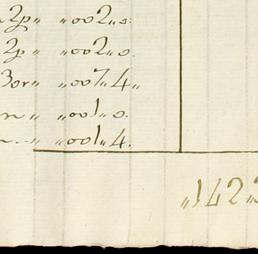 2p„ „002„0.
2p„ „002„0.
3or„ „007„4„
„001„0.
„001„4.
„1422